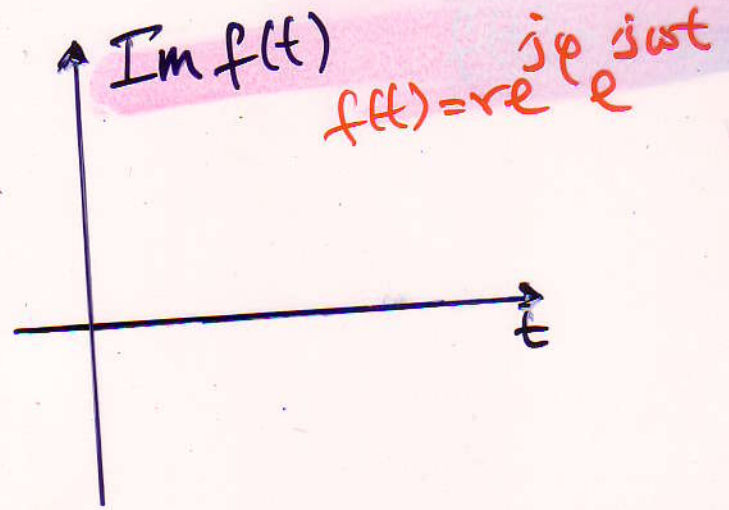 Im f(t)
f(t)=re^{jφ} e^{jωt}
t